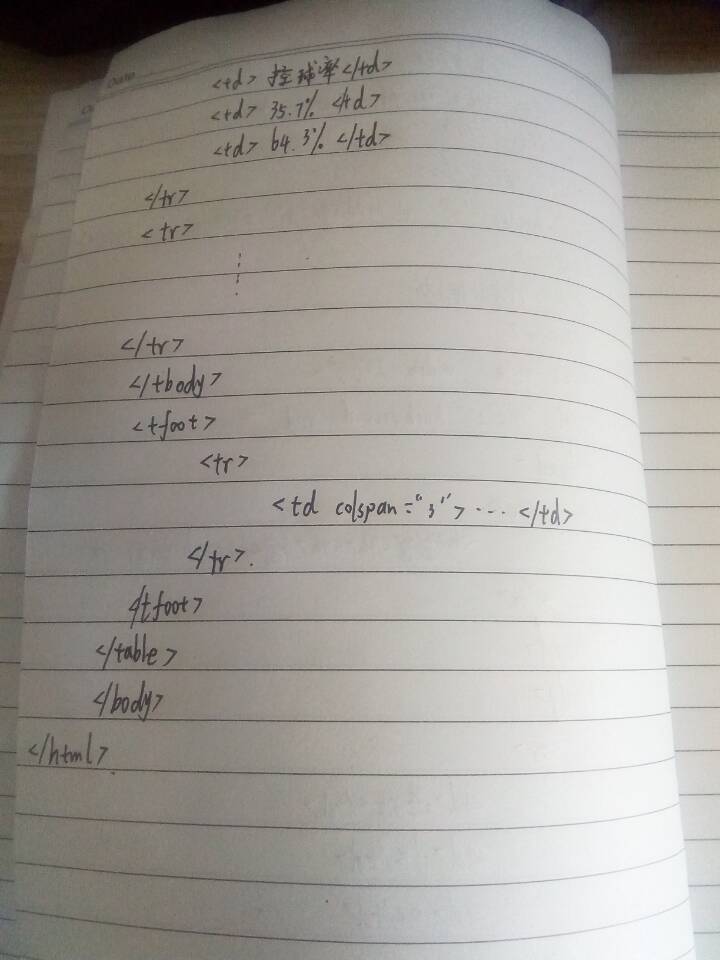 Date
<td> 控球率 </td>
<td> 35.7% </td>
<td> 64.3% </td>
</tr>
<tr>
</tr>
</tbody>
<tfoot>
<tr>
<td colspan="3"> ... </td>
</tr>.
</tfoot>
</table>
</body>
</html>.